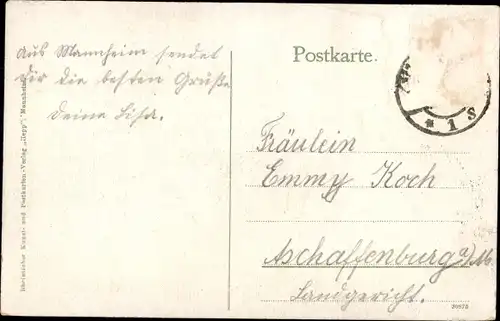 Postkarte.
Aus Mannheim sendet
Dir die besten Grüße
Deine Lisa.
Fräulein
Emmy Koch
Aschaffenburg a/M.
Landgericht.
* 1 S
Rheinischer Kunst- und Postkarten-Verlag „Hepp“, Mannheim.